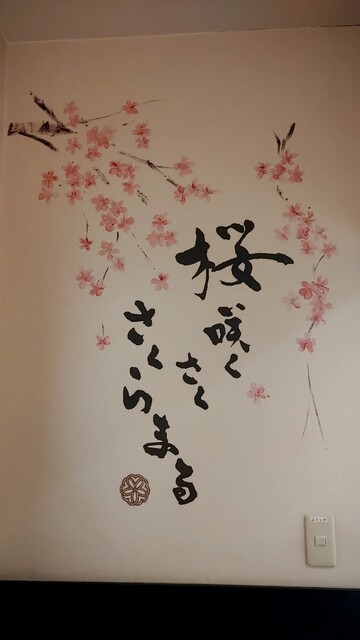 桜咲く
さく
さくらまる